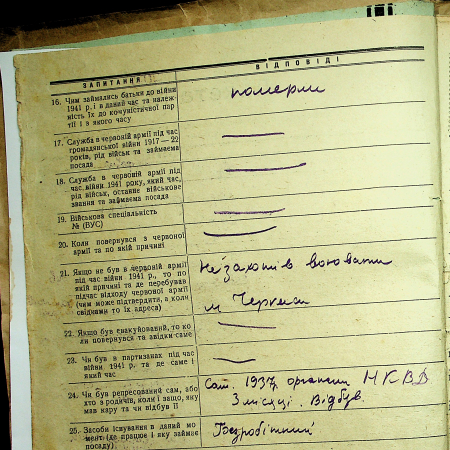 ЗАПИТАННЯ
ВІДПОВІДІ
16. Чим займались батьки до війни
1941 р. і в даний час та належ-
ність їх до комуністичної пар-
тії і з якого часу
померли
17. Служба в червоній армії під час
громадянської війни 1917—22
років, рід військ та займаема
посада
18. Служба в червоній армії під
час війни 1941 року, який час,
рід військ, останнє військове
звання та займаема посада
19. Військова спеціальність
№ (ВУС)
20. Коли повернувся з червоної
армії та по якій причині
21. Якщо не був в червоній армії
під час війни 1941 р., то по
якій причині та де перебував
підчас відходу червоної армії
(чим може підтвердити, а коли
свідками то їх адреса)
Не захотів воювати
м Черкаси
22. Якщо був евакуйований, то ко-
ли повернувся та звідки саме
23. Чи був в партизанах під час
війни 1941 р. та де саме і
який час
24. Чи був репресований сам, або
хто з родичів, коли і защо, яку
мав кару та чи відбув її
Сам. 1937 органами НКВД
3 місяці. Відбув
25. Засоби існування в даний мо-
мент (де працює і яку займає
посаду)
Безробітний